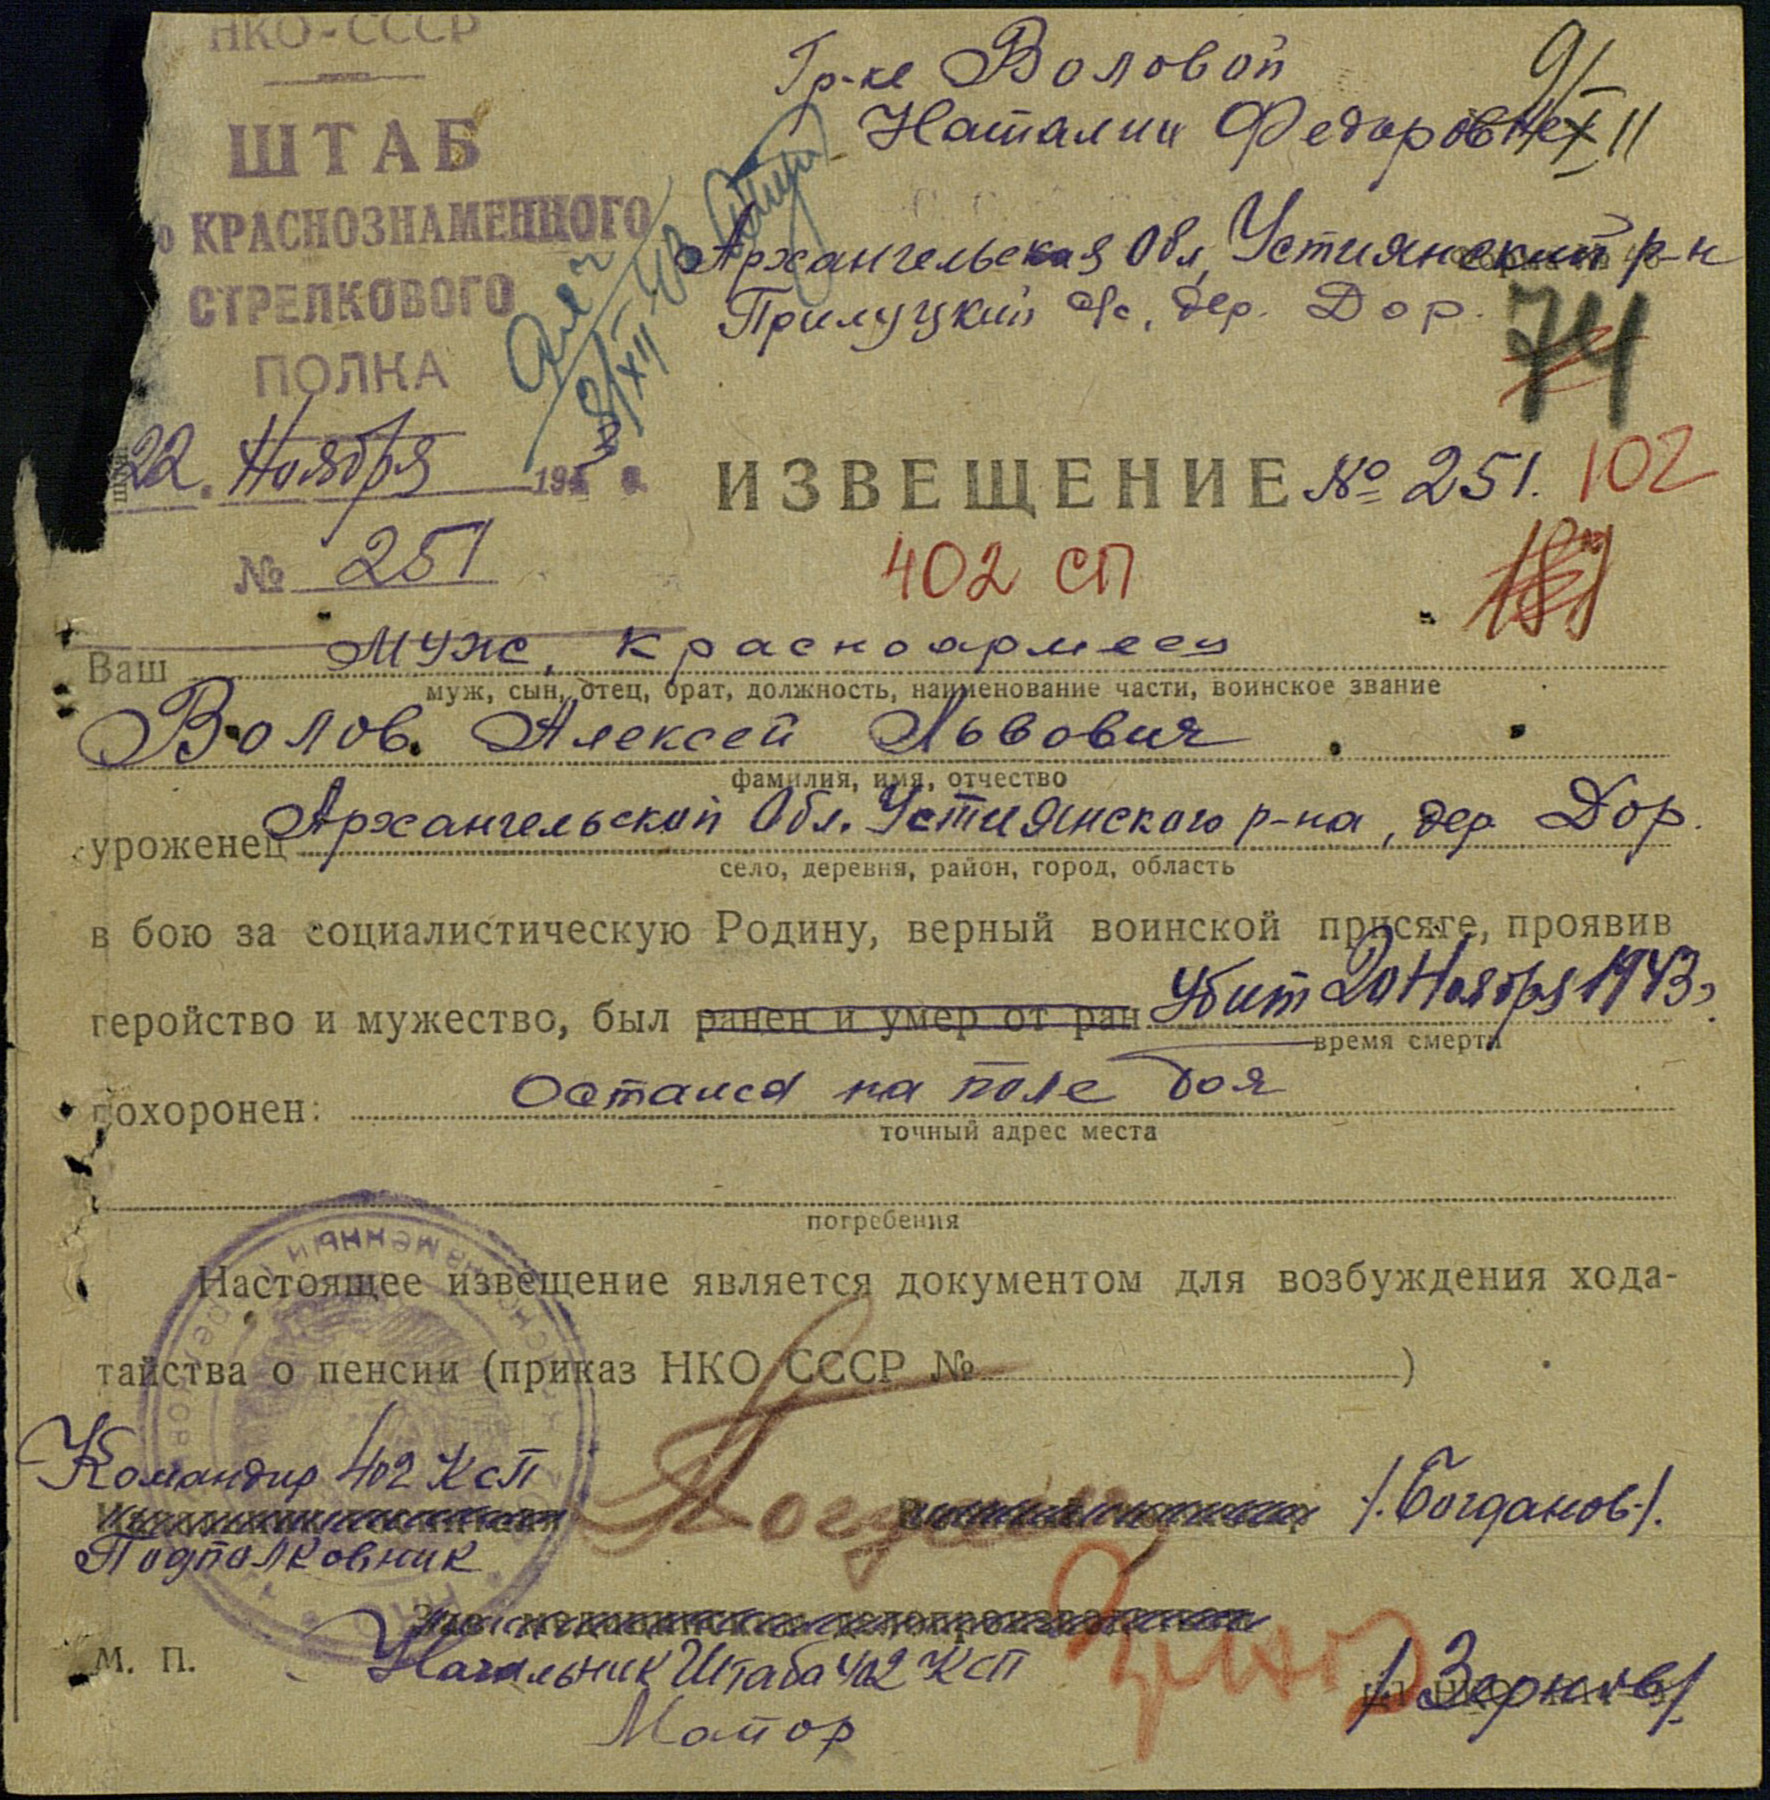 НКО-СССР
ШТАБ
КРАСНОЗНАМЕННОГО
СТРЕЛКОВОГО
ПОЛКА
22. Ноября 1943 г.
№ 251
Гр-ке Воловой
Наталии Федоровне
9/XII
Архангельская Обл, Устиянский р-н
Прилуцкий с/с, дер. Дор.
74
ИЗВЕЩЕНИЕ № 251. 102
402 СП
Ваш муж, красноармеец
муж, сын, отец, брат, должность, наименование части, воинское звание
Волов Алексей Львович
фамилия, имя, отчество
уроженец Архангельской Обл. Устиянского р-на, дер. Дор.
село, деревня, район, город, область
в бою за социалистическую Родину, верный воинской присяге, проявив
геройство и мужество, был ранен и умер от ран Убит 20 Ноября 1943 г.
время смерти
похоронен: Остался на поле боя
точный адрес места
погребения
Настоящее извещение является документом для возбуждения хода-
тайства о пенсии (приказ НКО СССР № )
Командир 402 КСП
Подполковник /Богданов/.
М. П. Начальник Штаба 402 КСП /Зернов/
Майор